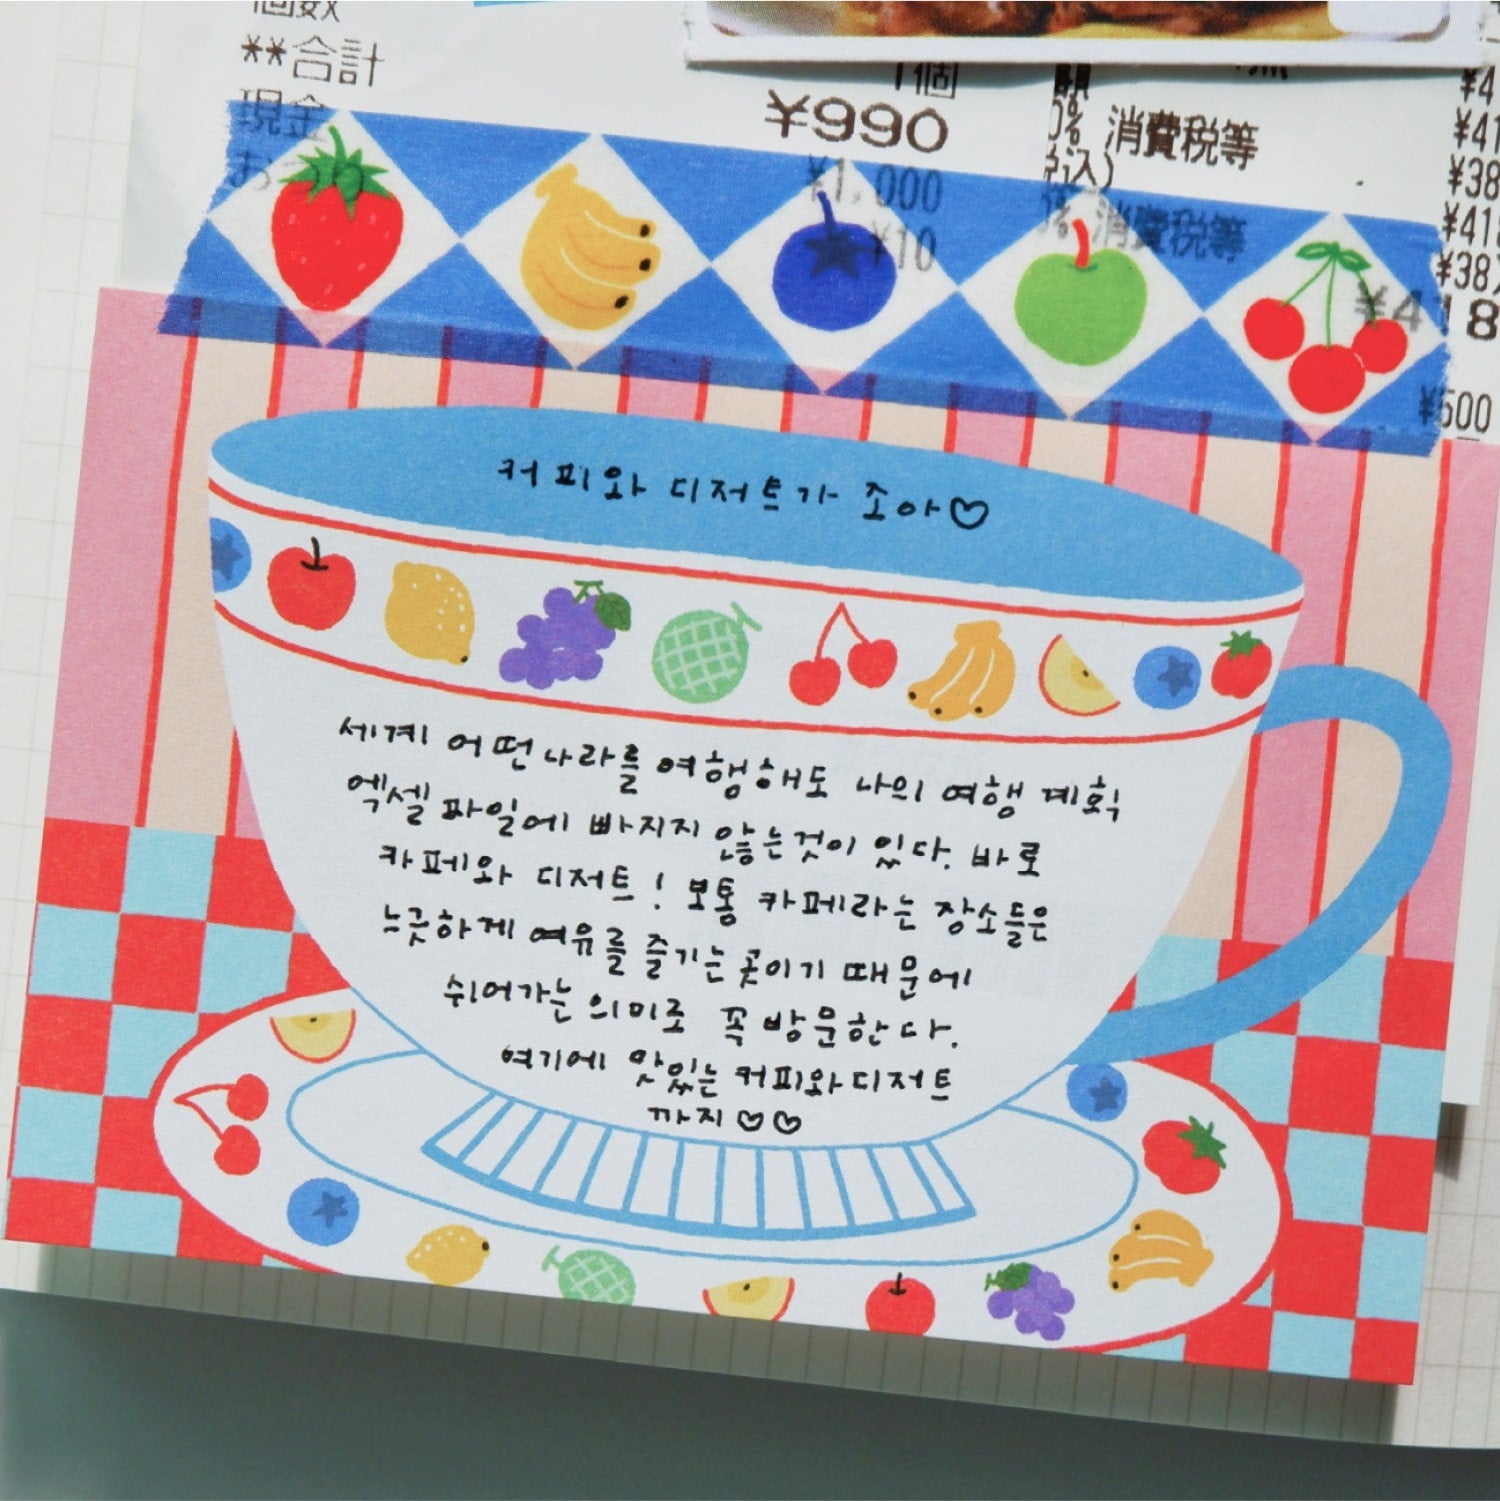 個数
**合計
1個
¥990
現金
¥1,000
¥10
消費税等
税込)
消費税等
¥418
¥500
커피와 디저트가 조아♡
세계 어떤나라를 여행해도 나의 여행 계획
엑셀 파일에 빠지지 않는것이 있다. 바로
카페와 디저트! 보통 카페라는 장소들은
느긋하게 여유를 즐기는 곳이기 때문에
쉬어가는 의미로 꼭 방문한다.
여기에 맛있는 커피와 디저트
까지♡♡